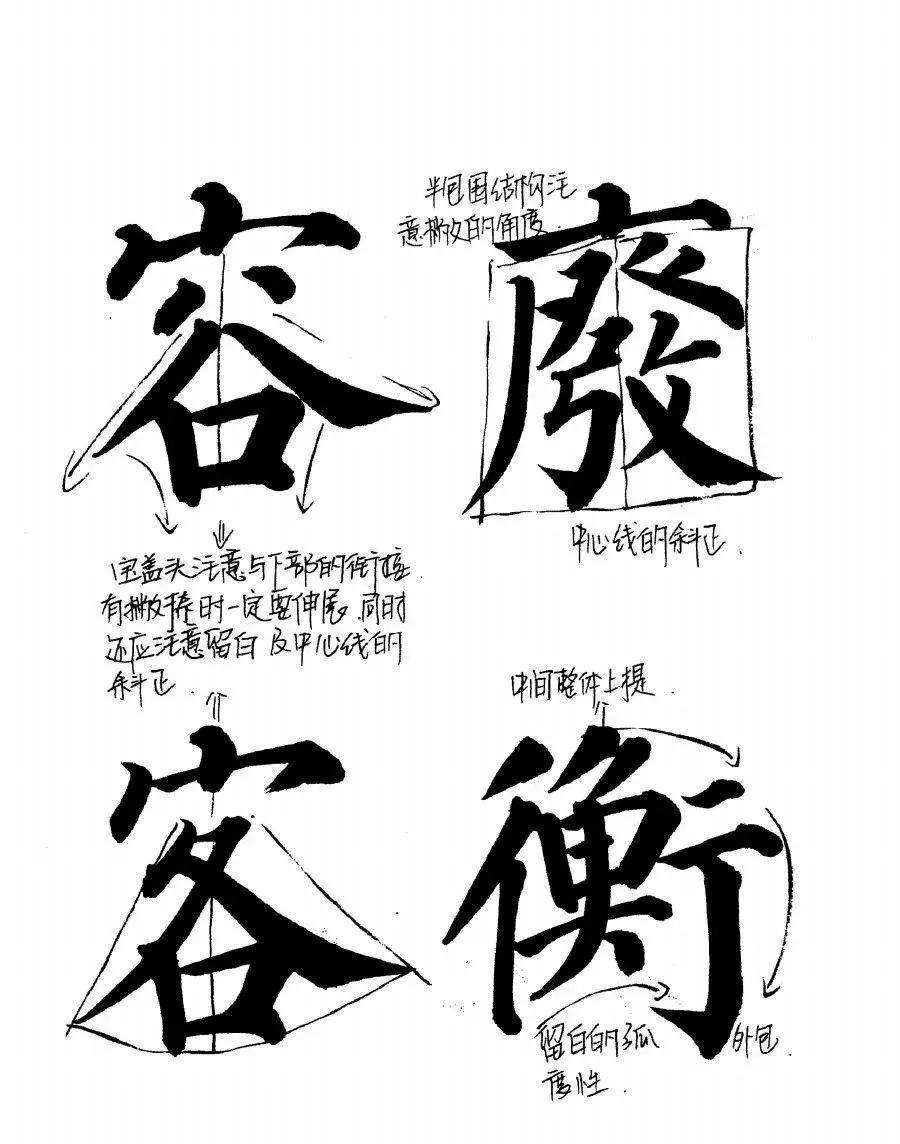 容
半包围结构注
意撇的角度.
廢
中心线的斜正.
宝盖头注意与下部的衔接
有撇捺时一定要伸展.同时
还应注意留白及中心线的
斜正.
客
中间整体上提.
衡
留白的弧
度性.
外包.